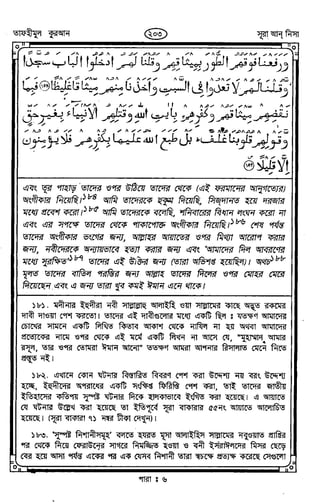 তাফহীমুল কুরআন ২০৩ সূরা আন্ নিসা
وَرَفَعْنَا فَوْقَهُمُ الطُّورَ بِمِيثَاقِهِمْ وَقُلْنَا لَهُمُ ادْخُلُوا الْبَابَ سُجَّدًا
وَّقُلْنَا لَهُمْ لَا تَعْدُوا فِي السَّبْتِ وَأَخَذْنَا مِنْهُمْ مِّيثَاقًا غَلِيظًا ﴿١٥٤﴾ فَبِمَا
نَقْضِهِمْ مِّيثَاقَهُمْ وَكُفْرِهِمْ بِآيَاتِ اللَّهِ وَقَتْلِهِمُ الْأَنْبِيَاءَ بِغَيْرِ حَقٍّ
وَّقَوْلِهِمْ قُلُوبُنَا غُلْفٌ بَلْ طَبَعَ اللَّهُ عَلَيْهَا بِكُفْرِهِمْ فَلَا يُؤْمِنُونَ
إِلَّا قَلِيلًا ﴿١٥٥﴾
এবং তূর পাহাড় তাদের ওপর উঠিয়ে তাদের থেকে (এই ফরমানের আনুগত্যের)
অংগীকার নিয়েছি।১৮৪ আমি তাদেরকে হুকুম দিয়েছি, সিজ্দানত হয়ে দরজার
মধ্যে প্রবেশ করো।১৮৫ আমি তাদেরকে বলেছি, শনিবারের বিধান লংঘন করো না
এবং এর সপক্ষে তাদের থেকে পাকাপোক্ত অংগীকার নিয়েছি।১৮৬ শেষ পর্যন্ত
তাদের অংগীকার ভংগের জন্য, আল্লাহর আয়াতের ওপর মিথ্যা আরোপ করার
জন্য, নবীদেরকে অন্যায়ভাবে হত্যা করার জন্য এবং 'আমাদের দিল আবরণের
মধ্যে সুরক্ষিত'১৮৭ তাদের এই উক্তির জন্য (তারা অভিশপ্ত হয়েছিল)। অথচ১৮৮
মূলত তাদের বাতিল পরস্তির জন্য আল্লাহ তাদের দিলের ওপর মোহর মেরে
দিয়েছেন এবং এ জন্য তারা খুব কমই ঈমান এনে থাকে।
১৮১. মদীনার ইহুদীরা নবী সাল্লাল্লাহু আলাইহি ওয়া সাল্লামের কাছে অদ্ভুত রকমের
দাবী দাওয়া পেশ করতো। তাদের এই দাবীগুলোর মধ্যে একটি ছিল : যতক্ষণ আমাদের
চোখের সামনে একটি লিখিত কিতাব আকাশ থেকে নাযিল না হয় অথবা আমাদের
প্রত্যেকের নামে ওপর থেকে এই মর্মে একটি লিখন না আসে যে, "মুহাম্মাদ আমার
রসূল, তার ওপর তোমরা ঈমান আনো" ততক্ষণ আমরা আপনার রিসালাত মেনে নিতে
প্রস্তুত নই।
১৮২. এখানে কোন ঘটনার বিস্তারিত বিবরণ পেশ করা উদ্দেশ্য নয় বরং উদ্দেশ্য
হচ্ছে, ইহুদীদের অপরাধের একটি সংক্ষিপ্ত ফিরিস্তি পেশ করা, তাই তাদের জাতীয়
ইতিহাসের কতিপয় সুস্পষ্ট ঘটনার দিকে হালকাভাবে ইংগিত করা হয়েছে। এ আয়াতে
যে ঘটনার উল্লেখ করা হয়েছে তা ইতিপূর্বে সূরা বাকারার ৫৫নং আয়াতে আলোচিত
হয়েছে। (সূরা বাকারা ৭১ নম্বর টীকা দেখুন)।
১৮৩. 'সুস্পষ্ট নিশানীসমূহ' বলতে হযরত মূসা আলাইহিস সালামের নবুওয়াত প্রাপ্তির
পর থেকে নিয়ে ফেরাউনের সাগরে নিমজ্জিত হওয়া ও বনী ইসরাঈলদের মিসর ছেড়ে
বের হয়ে আসা পর্যন্ত একের পর এক যেসব নিশানী তারা স্বচক্ষে প্রত্যক্ষ করেছে সেগুলো
পারা : ৬